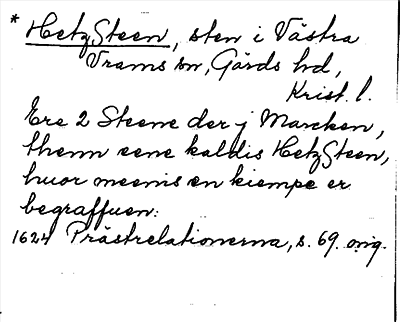 * HetzSteen, sten i Västra
Vrams sn, Gärds hd,
Krist. l.
Ere 2 Steene der j Marcken,
thenn eene kaldis HetzSteen,
huor meenis en kiempe er
begraffuen.
1624 Prästrelationerna, s. 69. orig.